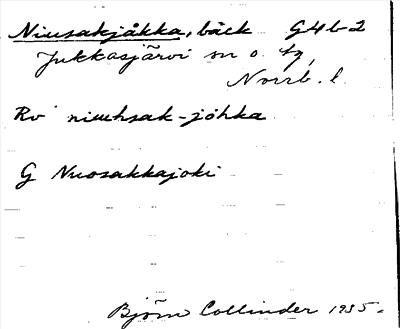 Niusakjåkka, bäck G4b-2
Jukkasjärvi sn o. tg,
Norrb. l.
Rv niuuhsak-jóhka
G Nuosakkajoki
Björn Collinder 1935.